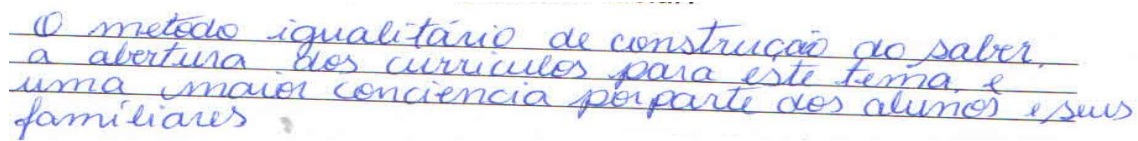 O metodo igualitário de construção do saber,
a abertura dos curriculos para este tema, e
uma maior conciencia por parte dos alunos e seus
familiares.